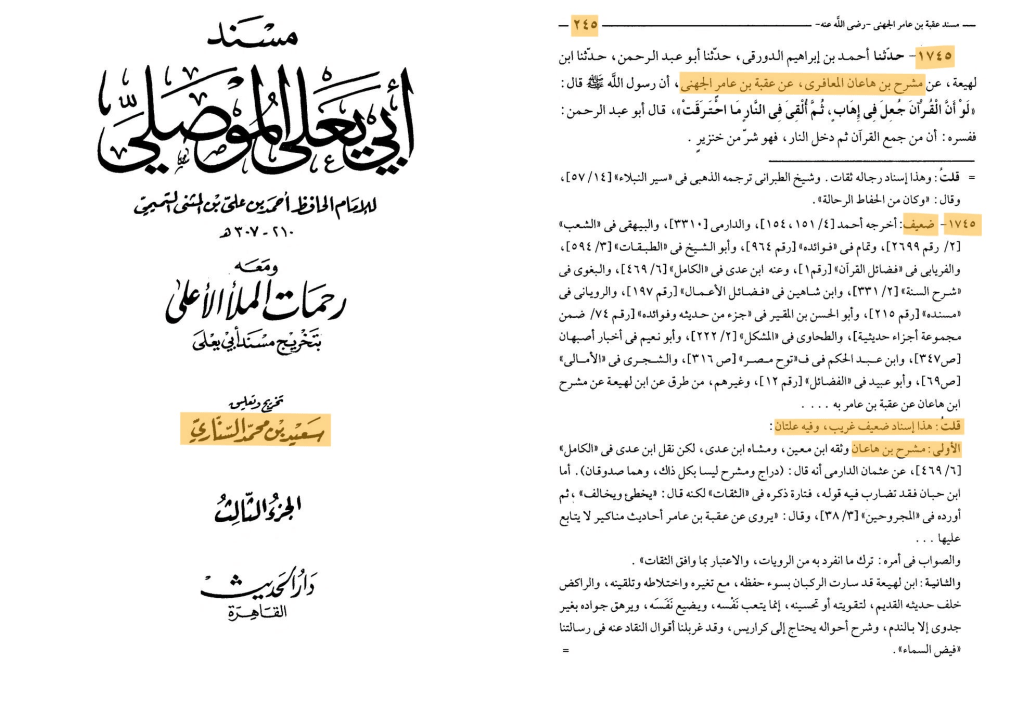 مسند عقبة بن عامر الجهنى -رضى اللَّه عنه- ٢٤٥
١٧٤٥- حدّثنا أحمد بن إبراهيم الدورقى، حدّثنا أبو عبد الرحمن، حدّثنا ابن
لهيعة، عن مشرح بن هاعان المعافرى، عن عقبة بن عامر الجهنى، أن رسول اللَّه ﷺ قال:
«لَوْ أَنَّ الْقُرْآنَ جُعِلَ فِى إِهَابٍ، ثُمَّ أُلْقِىَ فِى النَّارِ مَا احْتَرَقَتْ»، قال أبو عبد الرحمن:
ففسره: أن من جمع القرآن ثم دخل النار، فهو شرّ من خنزيرٍ.
= قلتُ: وهذا إسناد رجاله ثقات. وشيخ الطبرانى ترجمه الذهبى فى «سير النبلاء» [١٤/ ٥٧]،
وقال: «وكان من الحفاظ الرحالة».
١٧٤٥- ضعيف: أخرجه أحمد [٤/ ١٥١، ١٥٤]، والدارمى [٣٣١٠]، والبيهقى فى «الشعب»
[٢/ رقم ٢٦٩٩]، وتمام فى «فوائده» [رقم ٩٦٤]، وأبو الشيخ فى «الطبقات» [٣/ ٥٩٤]،
والفريابى فى «فضائل القرآن» [رقم١]، وعنه ابن عدى فى «الكامل» [٦/ ٤٦٩]، والبغوى فى
«شرح السنة» [٢/ ٣٣١]، وابن شاهين فى «فضائل الأعمال» [رقم ١٩٧]، والرويانى فى
«مسنده» [رقم ٢١٥]، وأبو الحسن بن المقير فى «جزء من حديثه وفوائده» [رقم ٧٤/ ضمن
مجموعة أجزاء حديثية]، والطحاوى فى «المشكل» [٢/ ٢٢٢]، وأبو نعيم فى أخبار أصبهان
[ص٣٤٧]، وابن عبد الحكم فى ف«توح مصر» [ص ٣١٦]، والشجرى فى «الأمالى»
[ص٦٩]، وأبو عبيد فى «الفضائل» [رقم ١٢]، وغيرهم، من طرق عن ابن لهيعة عن مشرح
ابن هاعان عن عقبة بن عامر به ....
قلتُ: هذا إسناد ضعيف غريب، وفيه علتان:
الأولى: مشرح بن هاعان وثقه ابن معين، ومشاه ابن عدى، لكن نقل ابن عدى فى «الكامل»
[٦/ ٤٦٩]، عن عثمان الدارمى أنه قال: (دراج ومشرح ليسا بكل ذاك، وهما صدوقان). أما
ابن حبان فقد تضارب فيه قوله، فتارة ذكره فى «الثقات» لكنه قال: «يخطئ ويخالف»، ثم
أورده فى «المجروحين» [٣/ ٣٨]، وقال: «يروى عن عقبة بن عامر أحاديث مناكير لا يتابع
عليها ...
والصواب فى أمره: ترك ما انفرد به من الرويات، والاعتبار بما وافق الثقات».
والثانية: ابن لهيعة قد سارت الركبان بسوء حفظه، مع تغيره واختلاطه وتلقينه، والراكض
خلف حديثه القديم، لتقويته أو تحسينه، إنما يتعب نَفْسه، ويضيع نَفَسَه، ويرهق جواده بغير
جدوى إلا بالندم، وشرح أحواله يحتاج إلى كراريس، وقد غربلنا أقوال النقاد عنه فى رسالتنا
«فيض السماء». =
مسند
أبي يعلى الموصلي
للإمام الحافظ أحمد بن علي بن المثنى التميمي
٢١٠ - ٣٠٧ هـ
ومعه
رحمات الملأ الأعلى
بتخريج مسند أبي يعلى
تخريج وتعليق
سعيد بن محمد السناري
الجزء الثالث
دار الحديث
القاهرة